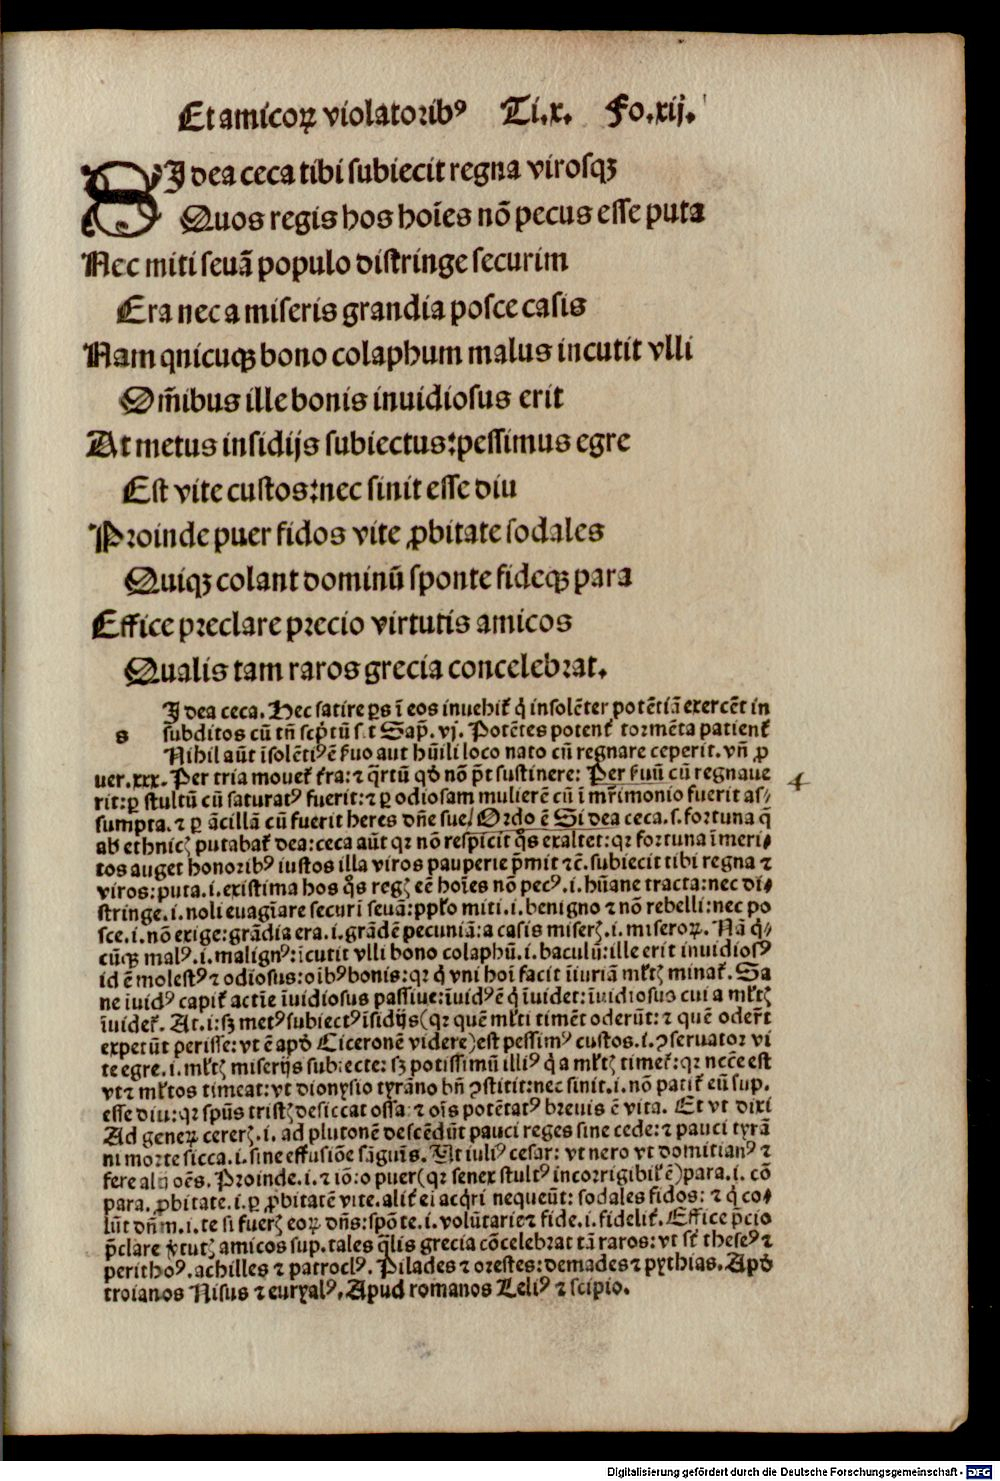 Et amicoꝝ violatoribꝰ Ti.x. Fo.xij.
SI dea ceca tibi subiecit regna virosqꝫ
Quos regis hos hoīes nō pecus esse puta
Nec miti seuā populo distringe securim
Era nec a miseris grandia posce casis
Nam qnicuqꝫ bono colaphum malus incutit vlli
Om̄ibus ille bonis inuidiosus erit
At metus insidijs subiectus: pessimus egre
Est vite custos: nec sinit esse diu
Proinde puer fidos vite ꝓbitate sodales
Quiqꝫ colant dominū sponte fideqꝫ para
Effice preclare precio virtutis amicos
Qualis tam raros grecia concelebrat.
I dea ceca. Hec satire ꝑs ī eos inuehit̄ q̇ insolēter potētiā exercēt in
s subditos cū tn̄ scp̄tū s.t Sap̄. vj. Potētes potent̄ tormēta patient̄
Nihil aūt īsolētiꝰ ē ẜuo aut hūili loco nato cū regnare ceperit. vn̄ ꝓ
uer.xxx. Per tria mouet̄ t̄ra: ⁊ q̄rtū qd̄ nō p̄t sustinere: Per ẜuū cū regnaue
rit: ꝑ stultū cū saturatꝰ fuerit: ⁊ ꝑ odiosam mulierē cū ī mr̄imonio fuerit as/
sumpta. ⁊ ꝑ ācillā cū fuerit heres dn̄e sue/ Ordo ē Si dea ceca. s. fortuna q̄
ab ethnicꝭ putabat̄ dea: ceca aūt qꝛ nō respicit q̊s exaltet: qꝛ fortuna īmeri-
tos auget honoribꝰ iustos illa viros pauperie p̄mit ⁊c̄. subiecit tibi regna ⁊
viros: puta. i. existima hos q̊s regꝭ eē hoīes nō pecꝰ. i. hūane tracta: nec di-
stringe. i. noli euagīare securī seuā: ppl̄o miti. i. benigno ⁊ nō rebelli: nec po
sce. i. nō exige: grādia era. i. grādē pecuniā: a casis miserꝭ. i. miseroꝝ. Nā q̇-
cūqꝫ malꝰ. i. malignꝰ: īcutit vlli bono colaphū. i. baculū: ille erit inuidiosꝰ
id ē molestꝰ ⁊ odiosus: oībꝰ bonis: qꝛ q̇ vni hoī facit īiuriā ml̄tꝭ minat̄. Sa
ne īuidꝰ capit̄ actīe īuidiosus passiue: īuidꝰ ē q̇ īuidet: īuidiosus cui a ml̄tꝭ
īuidet̄. At. i: sꝫ metꝰ subiectꝰ īsidijs (qꝛ quē ml̄ti timēt oderūt: ⁊ quē oder̄t
expetūt perisse: vt ē apd̄ Ciceronē videre) est pessimꝰ custos. i. ꝯseruator vi
te egre. i. ml̄tꝭ miserijs subiecte: sꝫ potissimū illiꝰ q̇ a ml̄tꝭ timet̄: qꝛ ncc̄e est
vt ⁊ ml̄tos timeat: vt dionysio tyrāno bn̄ ꝯstitit: nec sinit. i. nō patit̄ eū sup.
esse diu: qꝛ spūs tristꝭ desiccat ossa: ⁊ oīs potētatꝰ breuis ē vita. Et vt dixi
Ad generꝝ cererꝭ. i. ad plutonē descēdūt pauci reges sine cede: ⁊ pauci tyrā
ni morte sicca. i. sine effusiōe sāguīs. Ut iuliꝰ cesar: vt nero vt domitianꝰ ⁊
fere alij oēs. Proinde. i. ⁊ iō: o puer (qꝛ senex stultꝰ incorrigibil̄ ē) para. i. cō
para. ꝓbitate. i. ꝑ ꝓbitatē vite. alit̄ ei acq̇ri nequeūt: sodales fidos: ⁊ q̇ co-
lūt dn̄m. i. te si fuerꝭ eoꝝ dn̄s: spōte. i. volūtarie ⁊ fide. i. fidelit̄. Effice p̄cio
p̄clare v̇tutꝭ amicos sup. tales q̄lis grecia cōcelebrat tā raros: vt st̄ theseꝰ ⁊
perithoꝰ. achilles ⁊ patroclꝰ. Pilades ⁊ orestes: demades ⁊ pythias. Apd̄
troianos Nisus ⁊ euryalꝰ. Apud romanos Leliꝰ ⁊ scipio.
Digitalisierung gefördert durch die Deutsche Forschungsgemeinschaft - DFG